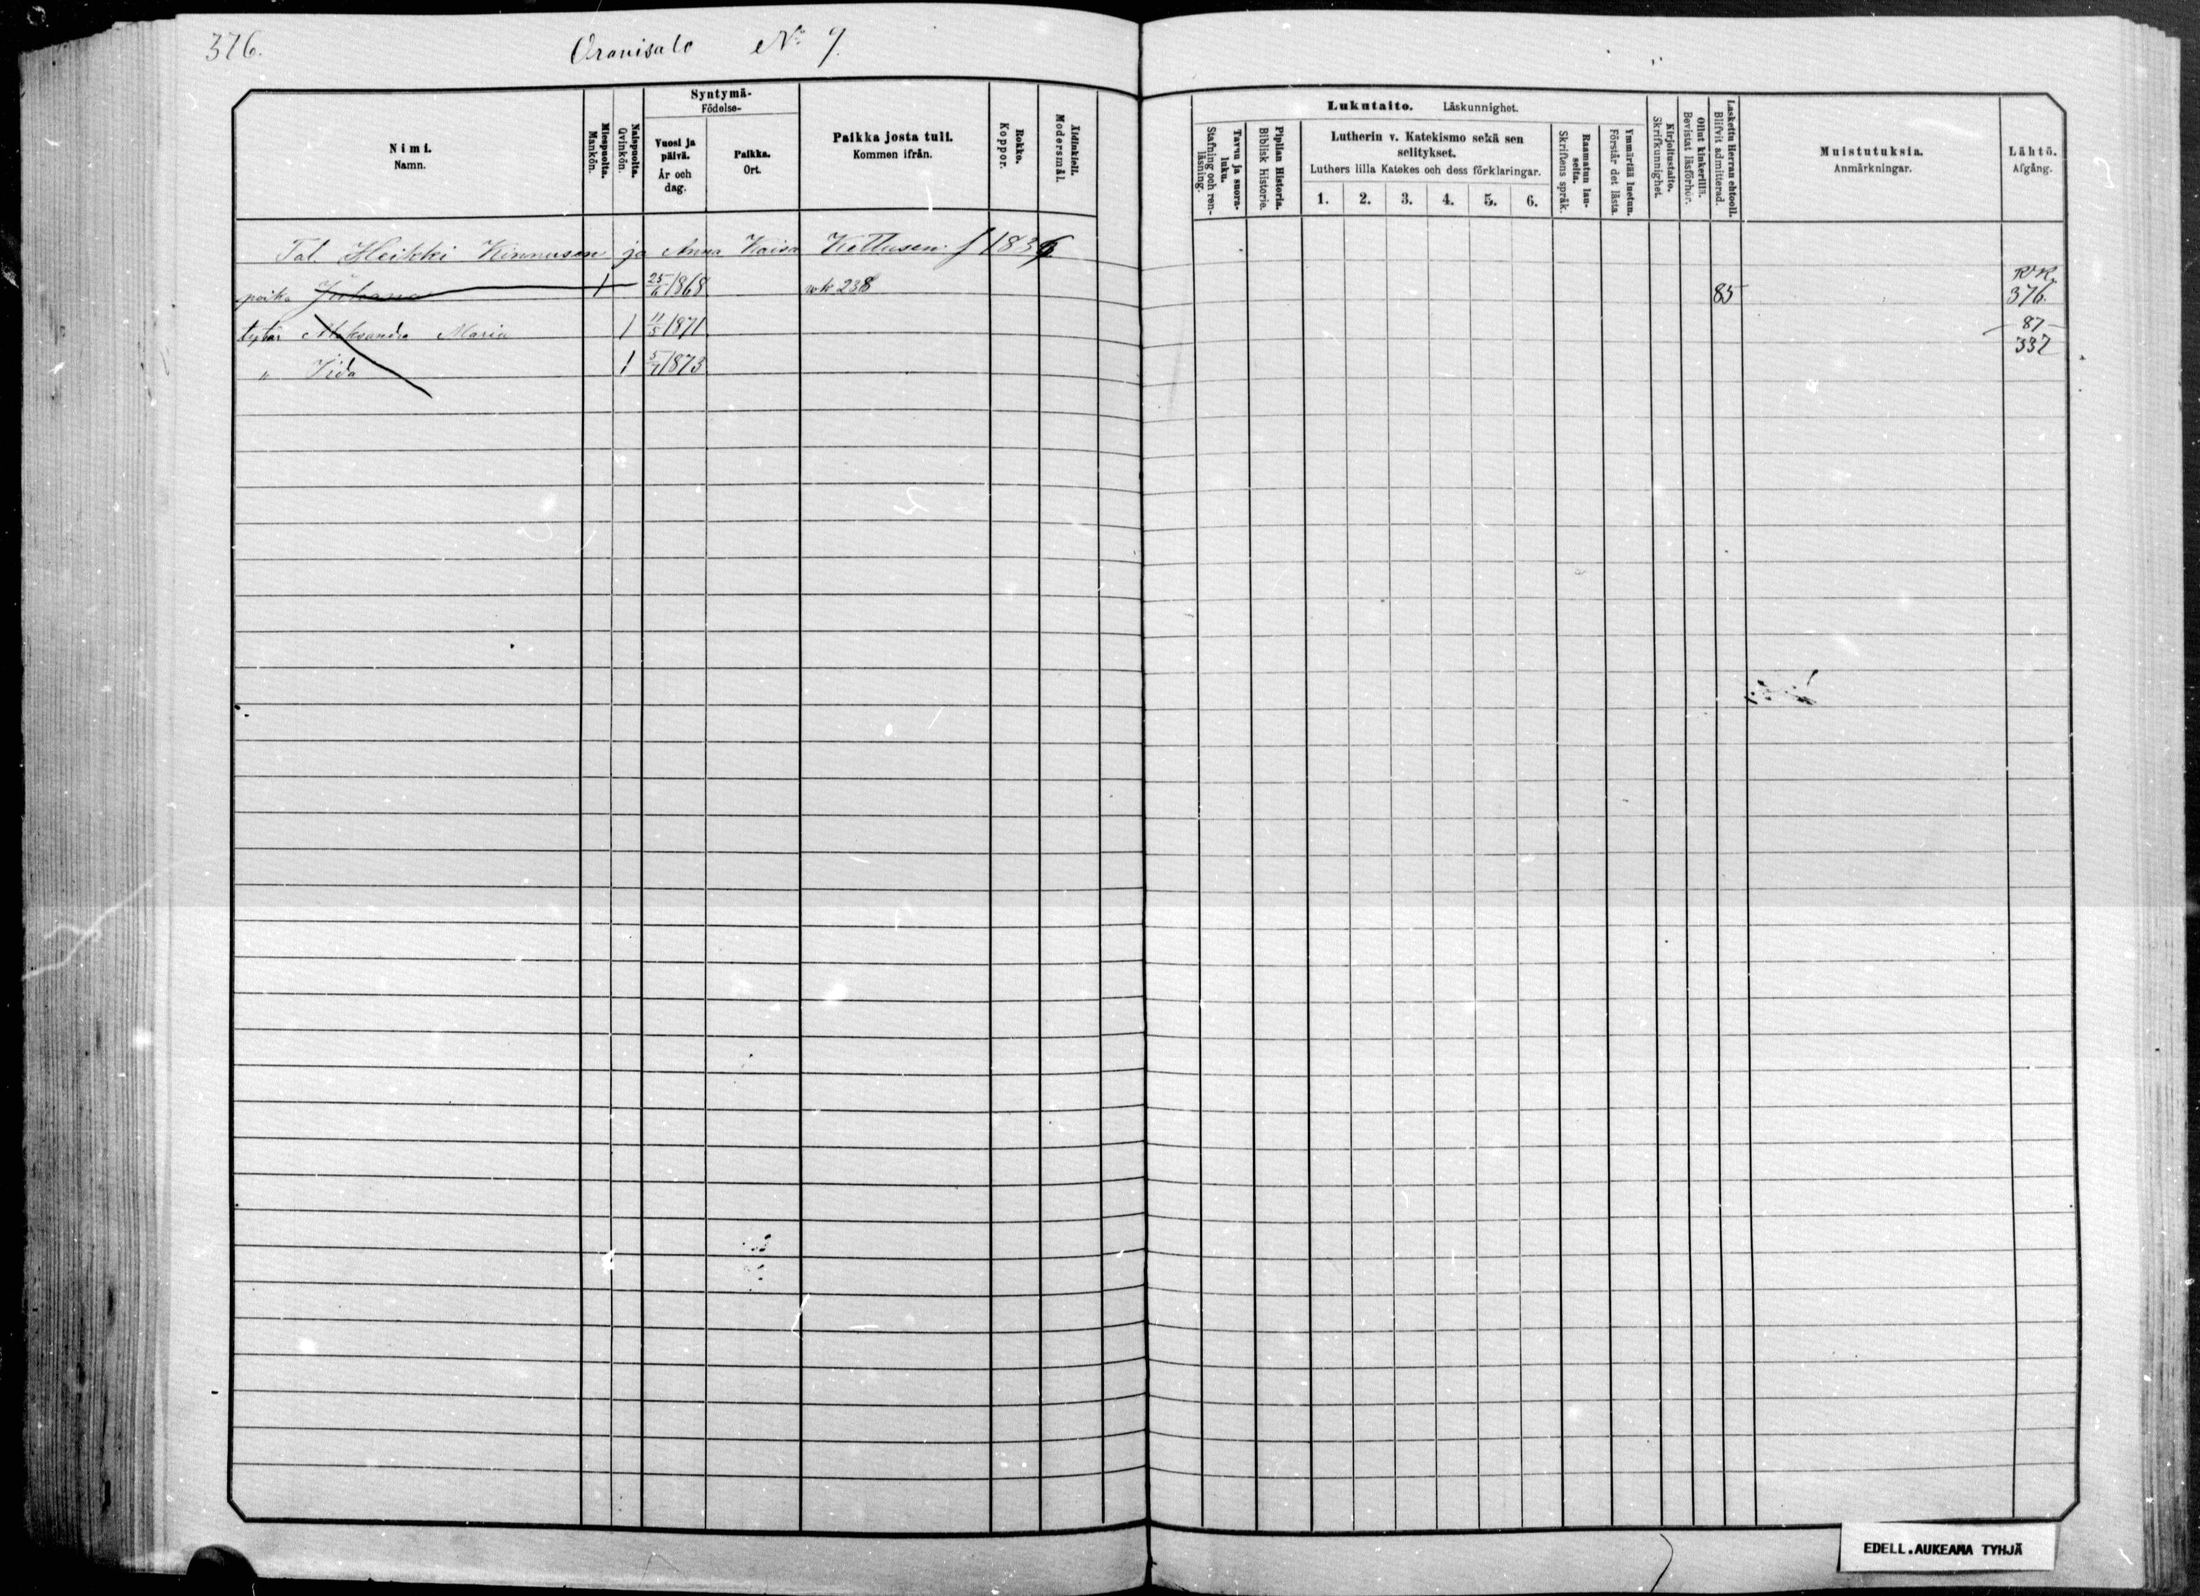 376.
Oranisalo № 7.
Syntymä-
Födelse-
Nimi.
Namn.
Miespuolta.
Mankön.
Naispuolta.
Qvinkön.
Vuosi ja
päivä.
År och
dag.
Paikka.
Ort.
Paikka josta tuli.
Kommen ifrån.
Rokko.
Koppor.
Äidinkieli.
Modersmål.
Lukutaito. Läskunnighet.
Tavuu ja suora-
luku.
Stafning och ren-
läsning.
Piplian Historia.
Biblisk historie.
Lutherin v. Katekismo sekä sen
selitykset.
Luthers lilla Katekes och dess förklaringar.
1. 2. 3. 4. 5. 6.
Raamatun lau-
seita.
Skriftens språk.
Ymmärtää luetun.
Förstår det lästa.
Kirjoitustaito.
Skrifkunnighet.
Ollut kinkerillä.
Bevistat läsförhör.
Laskettu Herran ehtooll.
Blifvit admitterad.
Muistutuksia.
Anmärkningar.
Lähtö.
Afgång.
Tal. Heikki Kinnusen ja Anna Kaisa Kettusen f 1836
poika Juhana 1 25/6 1868 rk 238 85 RK 376.
tytär Aleksandra Maria 1 11/5 1871 87
337
" Iida 1 5/7 1873
EDELL.AUKEAMA TYHJÄ